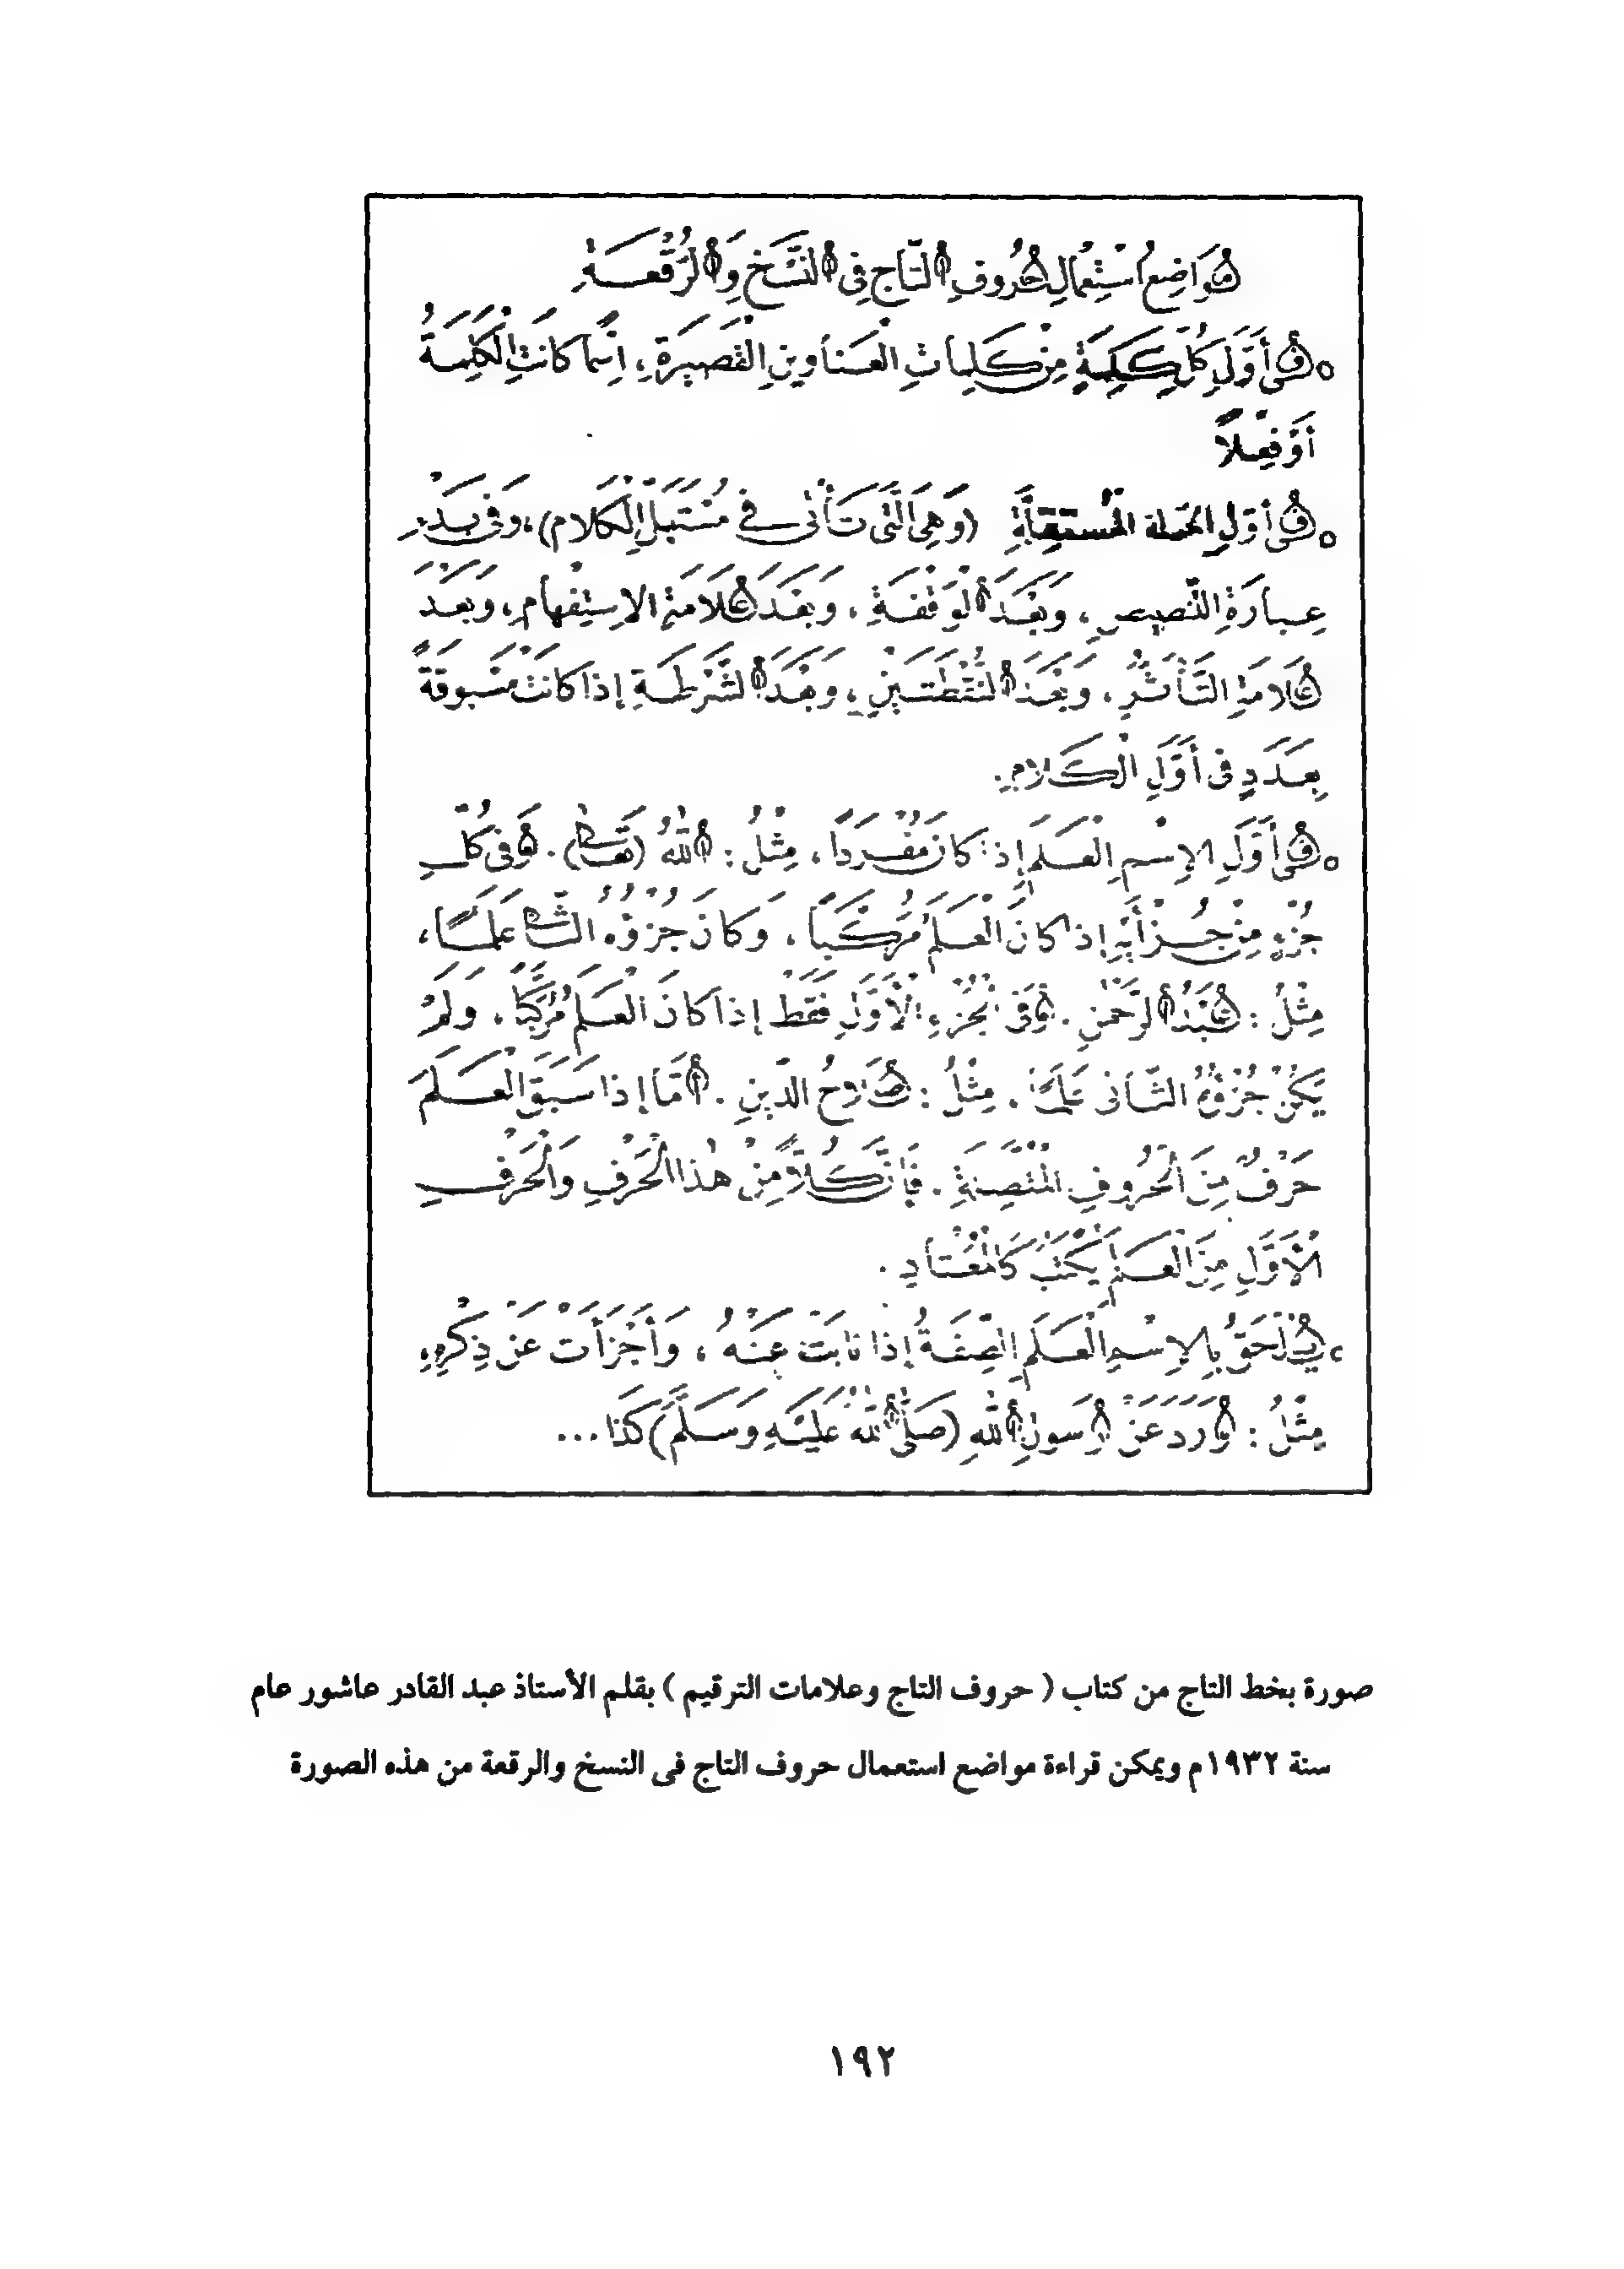 مَوَاضِعُ اسْتِعْمَالِ حُرُوفِ التَّاجِ فِى النَّسْخِ وَالرُّقْعَةِ
○ فِى أَوَّلِ كُلِّ كَلِمَةٍ مِنْ كَلِمَاتِ الْعَنَاوِينِ الْقَصِيرَةِ، اِسْمًا كَانَتِ الْكَلِمَةُ
أَوْ فِعْلاً
○ فِى أَوَّلِ الجملة الْمُسْتَقِلَّةِ (وَهِىَ الَّتِى تَأْتِى فِى مُسْتَهَلِّ الْكَلَامِ)، وَفِى بَدْءِ
عِبَارَةِ التَّنْصِيصِ، وَبَعْدَ الْوَقْفَةِ، وَبَعْدَ عَلَامَةِ الاِسْتِفْهَامِ، وَبَعْدَ
عَلَامَةِ التَّأَثُّرِ، وَبَعْدَ النُّقْطَتَيْنِ، وَبَعْدَ الشَّرْطَةِ إِذَا كَانَتْ مَسْبُوقَةً
بِعَدَدٍ فِى أَوَّلِ الْكَلَامِ.
○ فِى أَوَّلِ الاِسْمِ الْعَلَمِ إِذَا كَانَ مُفْرَدًا، مِثْلُ: اللّٰهُ (تَعَالَى). وَفِى كُلِّ
جُزْءٍ مِنْ جُزْأَيْهِ إِذَا كَانَ الْعَلَمُ مُرَكَّبًا، وَكَانَ جُزْؤُهُ الثَّانِى عَلَمًا،
مِثْلُ: عَبْدُ الرَّحْمٰنِ. وَفِى الْجُزْءِ الْأَوَّلِ فَقَطْ إِذَا كَانَ الْعَلَمُ مُرَكَّبًا، وَلَمْ
يَكُنْ جُزْؤُهُ الثَّانِى عَلَمًا، مِثْلُ: صَلَاحُ الدِّينِ. أَمَّا إِذَا سَبَقَ الْعَلَمَ
حَرْفٌ مِنَ الْحُرُوفِ الْمُتَّصِلَةِ، فَإِنَّ كُلاًّ مِنْ هٰذَا الْحَرْفِ وَالْحَرْفِ
الْأَوَّلِ مِنَ الْعَلَمِ يُكْتَبُ كَالْمُعْتَادِ.
○ يُلْحَقُ بِالاِسْمِ الْعَلَمِ الصِّفَةُ إِذَا نَابَتْ عَنْهُ، وَأَجْزَأَتْ عَنْ ذِكْرِهِ،
مِثْلُ: وَرَدَ عَنْ رَسُولِ اللّٰهِ (صَلَّى اللّٰهُ عَلَيْهِ وَسَلَّمَ) كَذَا...
صورة بخط التاج من كتاب ( حروف التاج وعلامات الترقيم ) بقلم الأستاذ عبد القادر عاشور عام
سنة ١٩٣٢م ويمكن قراءة مواضع استعمال حروف التاج فى النسخ والرقعة من هذه الصورة
١٩٢